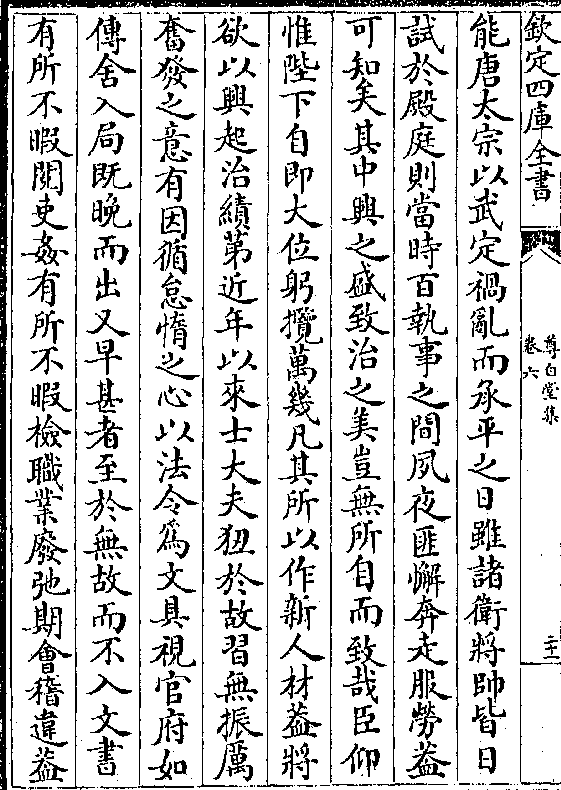 欽定四庫全書
尊白堂集
卷六
二十一
能唐太宗以武定禍亂而承平之日雖諸衛將帥皆日
試於殿庭則當時百執事之間夙夜匪懈奔走服勞葢
可知矣其中興之盛致治之美豈無所自而致哉臣仰
惟陛下自即大位躬攬萬幾凡其所以作新人材葢將
欲以興起治績第近年以來士大夫狃於故習無振厲
奮發之意有因循怠惰之心以法令為文具視官府如
傳舍入局既晚而出又早甚者至於無故而不入文書
有所不暇閱吏姦有所不暇檢職業廢弛期會稽違葢